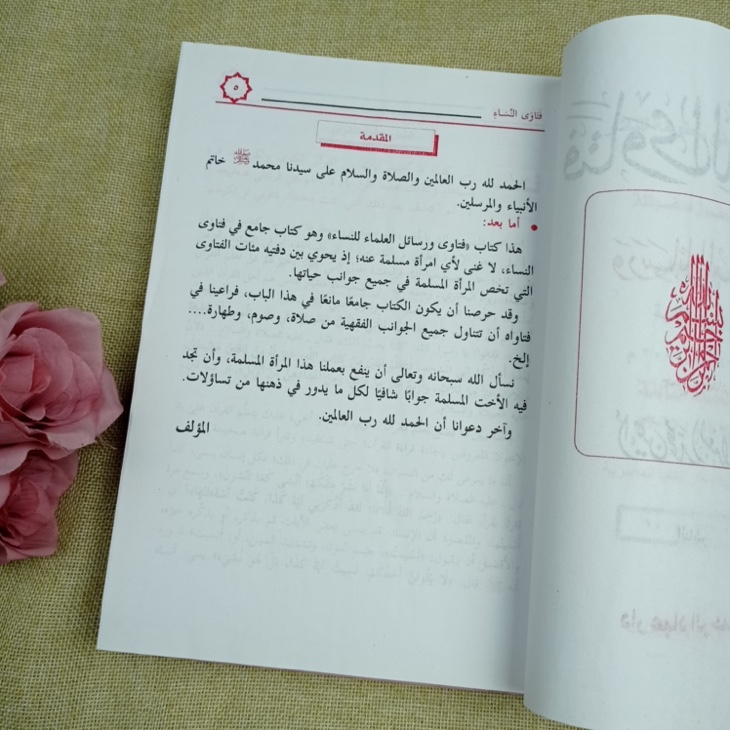 فتاوى النساء
٥
المقدمة
الحمد لله رب العالمين والصلاة والسلام على سيدنا محمد ﷺ خاتم
الأنبياء والمرسلين.
• أما بعد:
هذا كتاب «فتاوى ورسائل العلماء للنساء» وهو كتاب جامع في فتاوى
النساء، لا غنى لأي امرأة مسلمة عنه؛ إذ يحوي بين دفتيه مئات الفتاوى
التي تخص المرأة المسلمة في جميع جوانب حياتها.
وقد حرصنا أن يكون الكتاب جامعًا مانعًا في هذا الباب، فراعينا في
فتاواه أن تتناول جميع الجوانب الفقهية من صلاة، وصوم، وطهارة....
إلخ.
نسأل الله سبحانه وتعالى أن ينفع بعملنا هذا المرأة المسلمة، وأن تجد
فيه الأخت المسلمة جوابًا شافيًا لكل ما يدور في ذهنها من تساؤلات.
وآخر دعوانا أن الحمد لله رب العالمين.
المؤلف
بسم الله الرحمن الرحيم